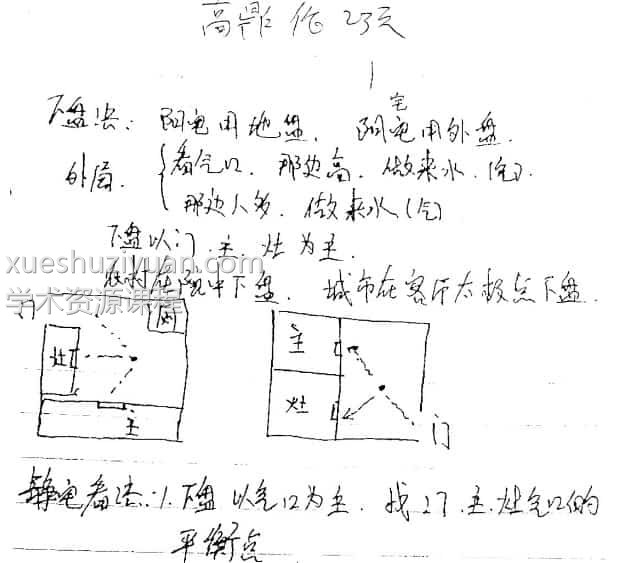 高鼎 作 23天
宅
下盘法：阴宅用地盘，阳宅用外盘．
外局．
看气口，那边高，做来水．(气)．
那边人多．做来水(气)
下盘以门．主．灶为主．
xueshuziyuan.com
农村在院中下盘．城市在客厅太极点下盘．
学术资源课程
门
灶
主
主
灶
门
静宅看法：1．下盘以气口为主．找门．主．灶气口的
平衡点